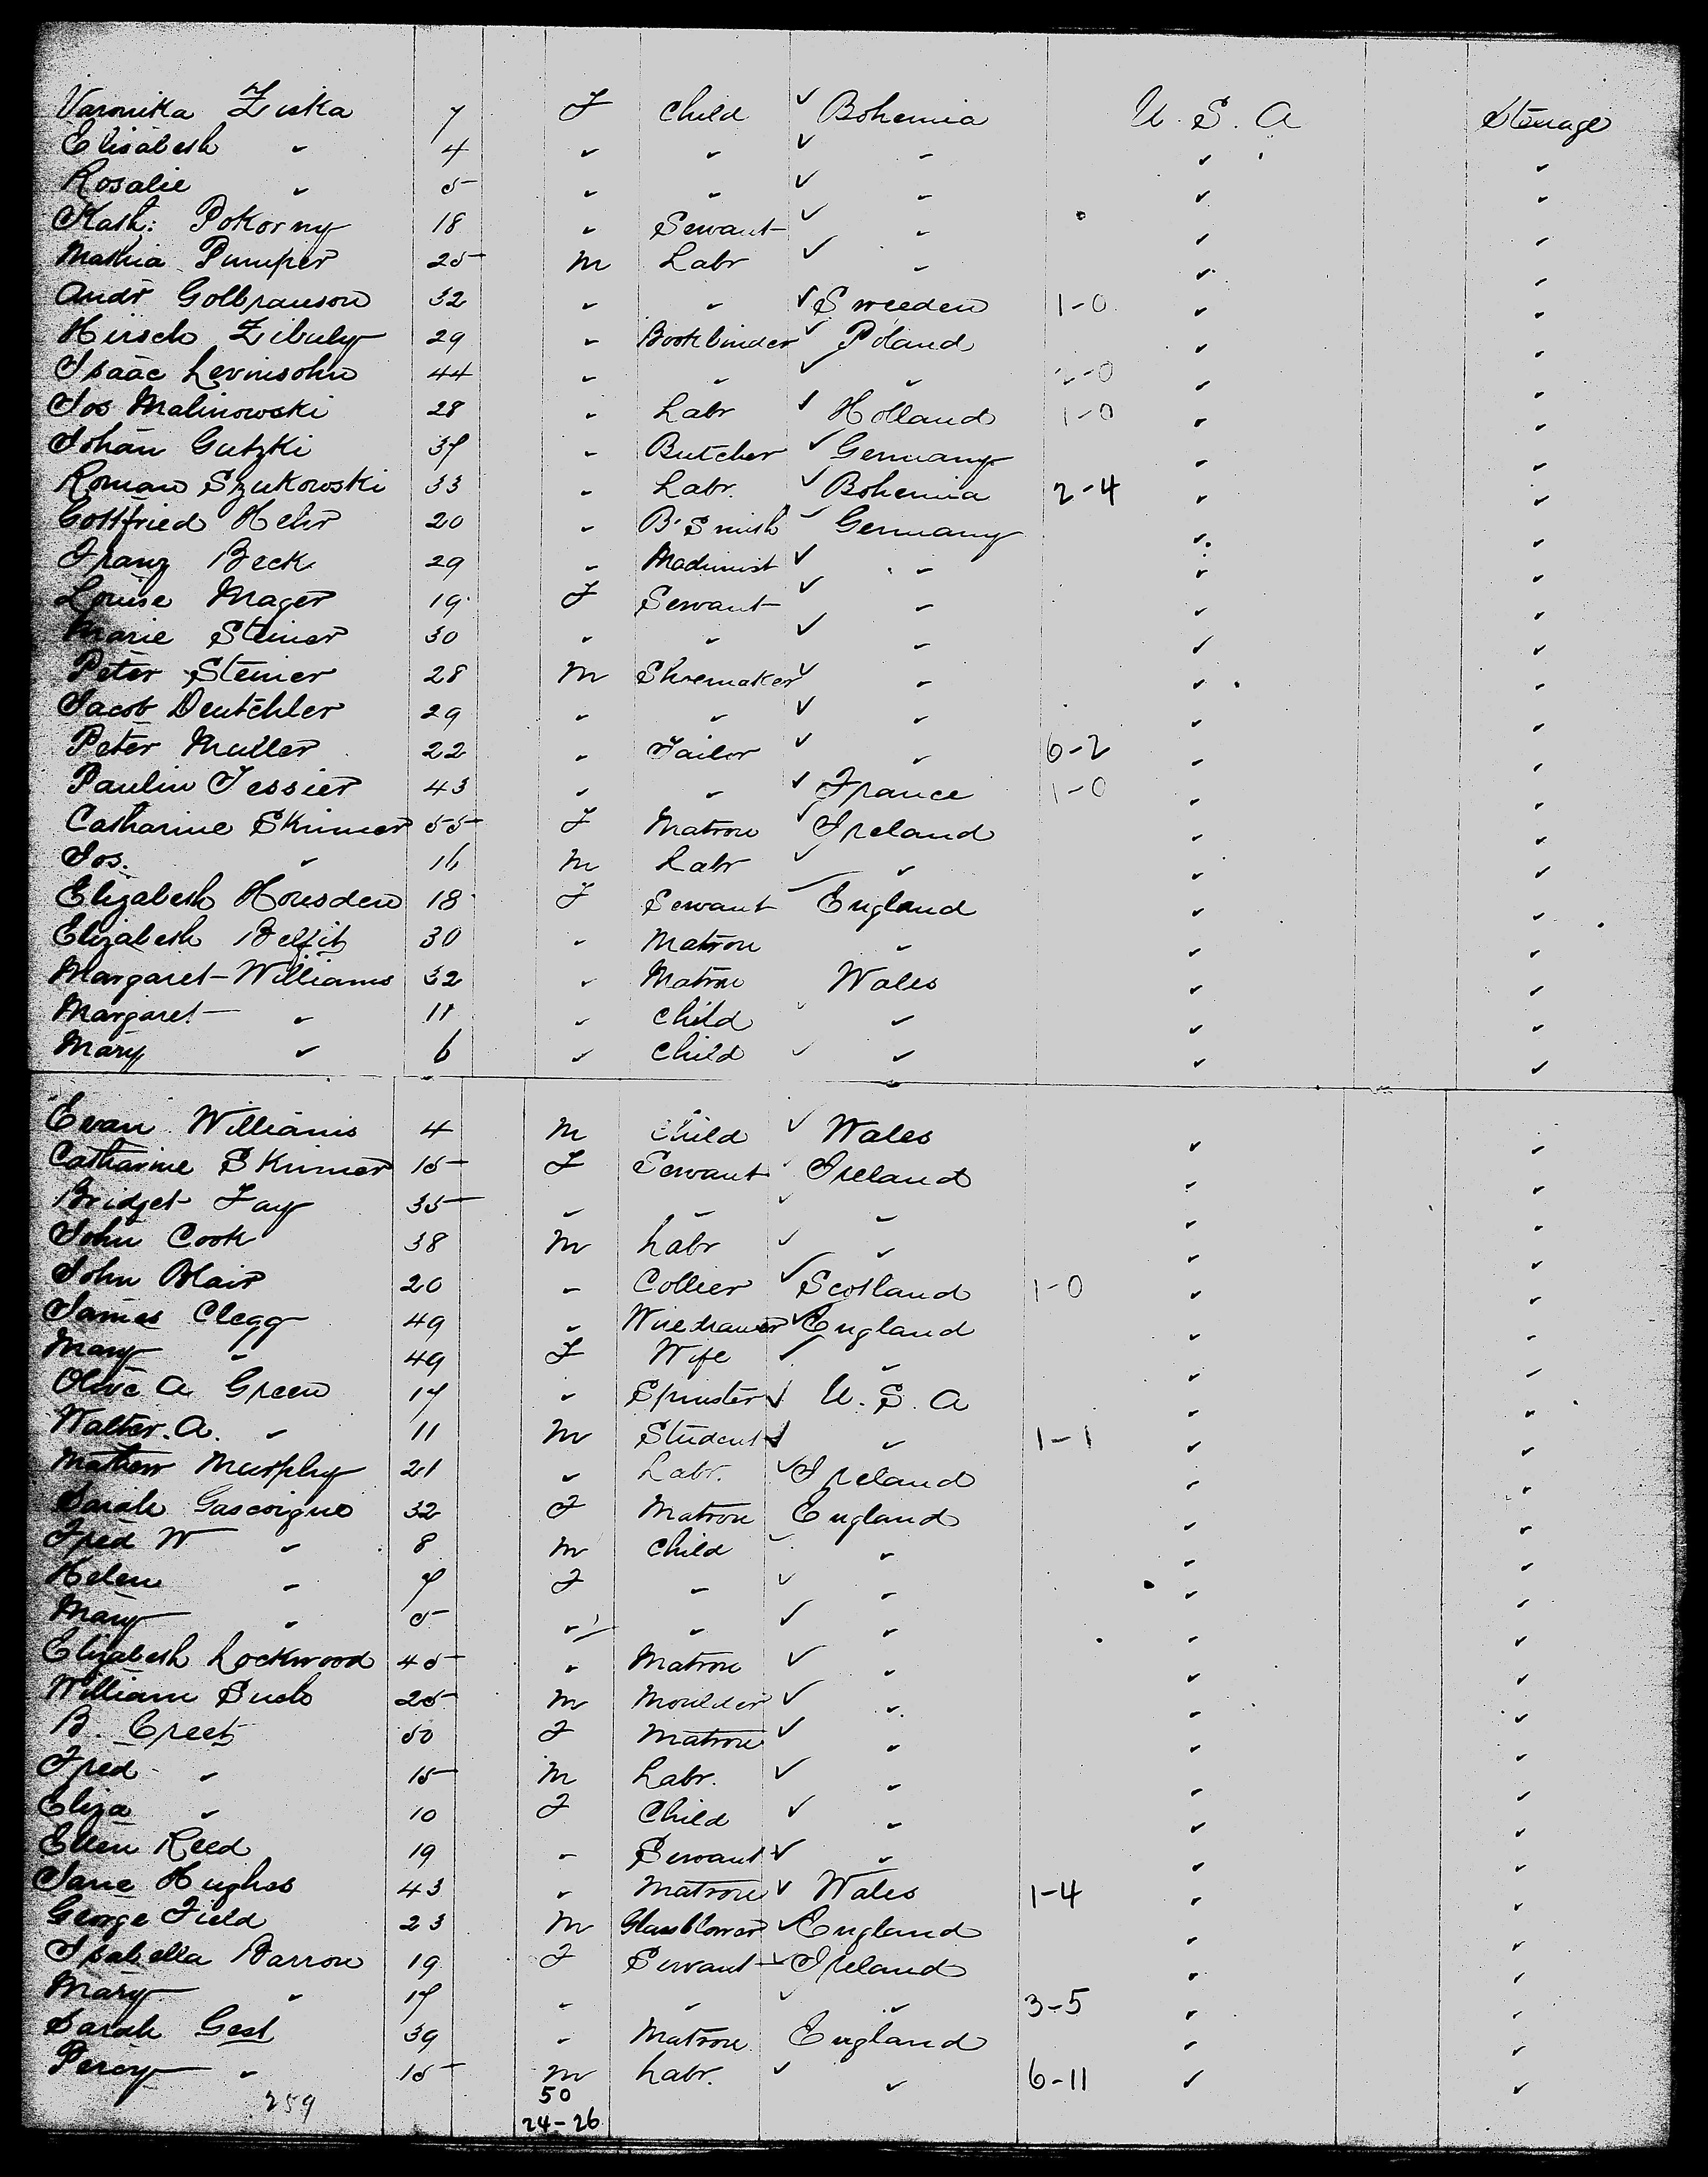 Varonika Ziska 7 F Child ✓ Bohemia U. S. A Steerage
Elisabeth " 4 " " ✓ " " "
Rosalie " 5 " " ✓ " " "
Kath: Pokorny 18 " Servant ✓ " " "
Mathia Pumper 25 M Labr ✓ " " "
Andr Golbranson 32 " " ✓ Sweeden 1-0 " "
Hirsch Zibuly 29 " Bookbinder ✓ Poland " "
Isaac Levinsohn 44 " " ✓ " 2-0 " "
Jos Malinowski 28 " Labr ✓ Holland 1-0 " "
Johan Gutzki 37 " Butcher ✓ Germany " "
Roman Szukowski 33 " Labr. ✓ Bohemia 2-4 " "
Gottfried Hehr 20 " B'Smith ✓ Germany " "
Franz Beck 29 " Machinist ✓ " " "
Louise Mager 19 F Servant ✓ " " "
Marie Steiner 30 " " ✓ " " "
Peter Steiner 28 M Shoemaker ✓ " " "
Jacob Deutchler 29 " " ✓ " " "
Peter Muller 22 " Tailor ✓ " 6-2 " "
Paulin Tessier 43 " " ✓ France 1-0 " "
Catharine Skinner 55 F Matron ✓ Ireland " "
Jos. " 16 M Labr ✓ " " "
Elizabeth Housden 18 F Servant ✓ England " "
Elizabeth Belfit 30 " Matron " " "
Margaret Williams 32 " Matron Wales " "
Margaret " 11 " Child ✓ " " "
Mary " 6 " Child ✓ " " "
Evan Williams 4 M Child ✓ Wales " "
Catharine Skinner 15 F Servant ✓ Ireland " "
Bridget Fay 35 " " ✓ " " "
John Cook 38 M Labr ✓ " " "
John Blair 20 " Collier ✓ Scotland 1-0 " "
James Clegg 49 " Wiredrawer ✓ England " "
Mary " 49 F Wife ✓ " " "
Olive A Green 17 " Spinster ✓ U. S. A " "
Walter. A. " 11 M Student ✓ " 1-1 " "
Mathew Murphy 21 " Labr. ✓ Ireland " "
Sarah Gascoigne 32 F Matron England " "
Fred W " 8 M Child ✓ " " "
Helen " 7 F " ✓ " " "
Mary " 5 " " ✓ " " "
Elizabeth Lockwood 45 " Matron ✓ " " "
William Bush 25 M Moulder ✓ " " "
B. Creet 50 F Matron ✓ " " "
Fred " 15 M Labr. ✓ " " "
Eliza " 10 F Child ✓ " " "
Ellen Reed 19 " Servant ✓ " " "
Jane Hughes 43 " Matron ✓ Wales 1-4 " "
George Field 23 M Glassblower ✓ England " "
Isabella Barron 19 F Servant ✓ Ireland " "
Mary " 17 " " ✓ " 3-5 " "
Sarah Gest 39 " Matron England " "
Percy " 15 M Labr. ✓ " 6-11 " "
259 50
24-26